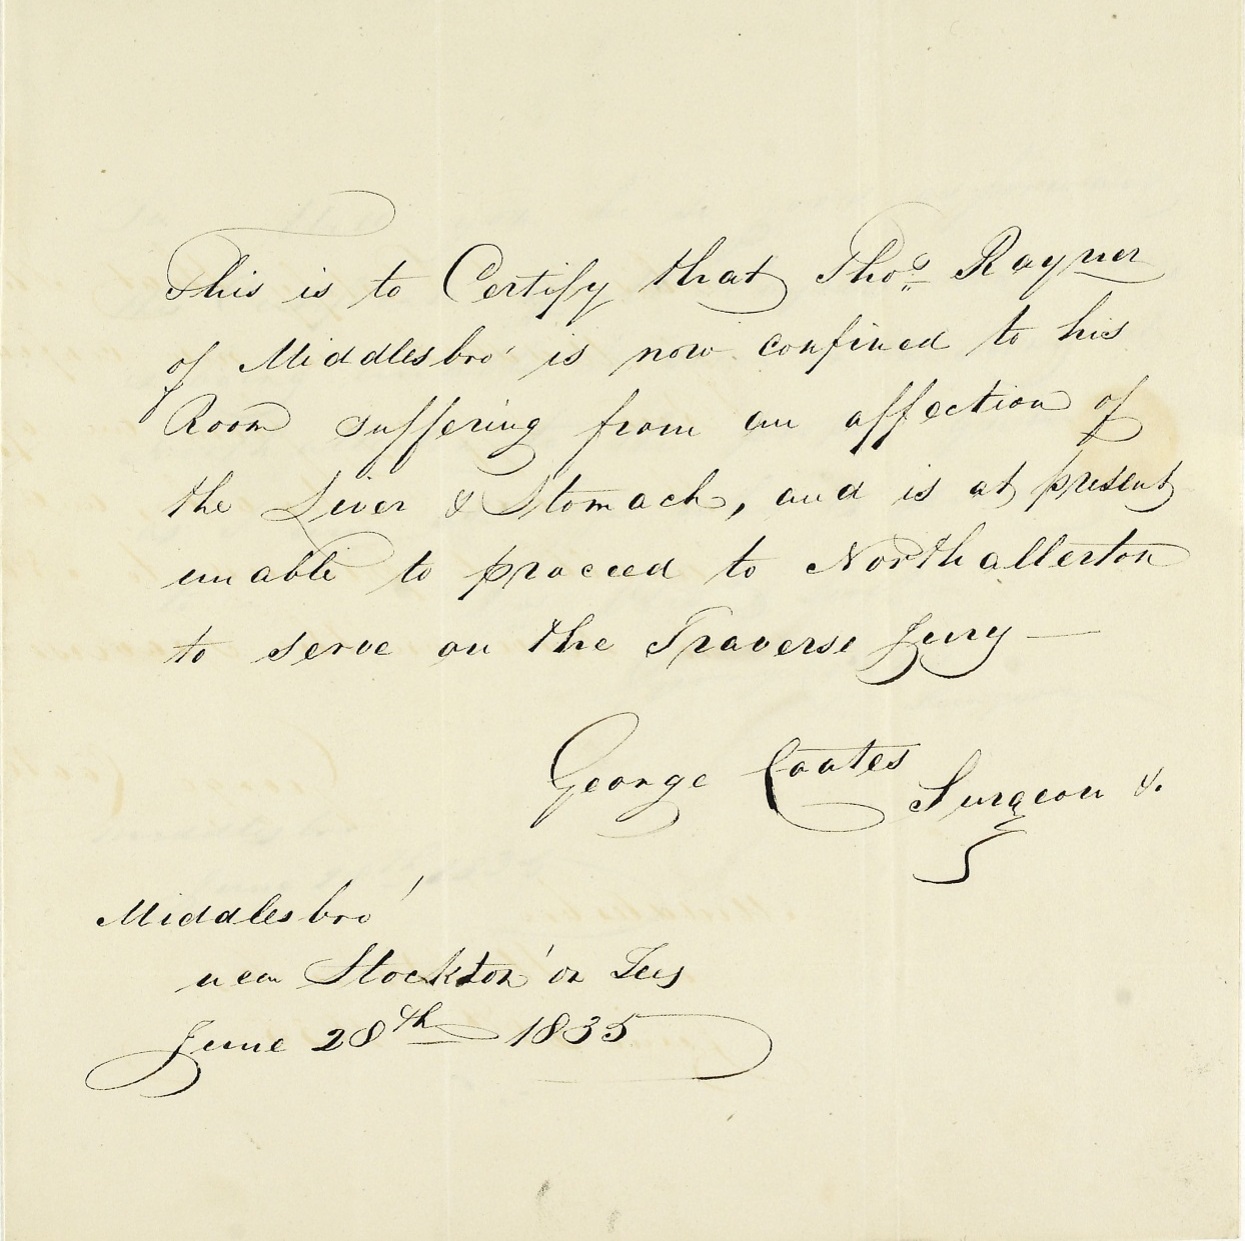 This is to Certify that Thos. Rayner
of Middlesbro' is now confined to his
Room suffering from an affection of
the Liver & Stomach, and is at present
unable to proceed to Northallerton
to serve on the Traverse Jury —
George Coates Surgeon &.
Middlesbro'
near Stockton' on Tees
June 28th 1835